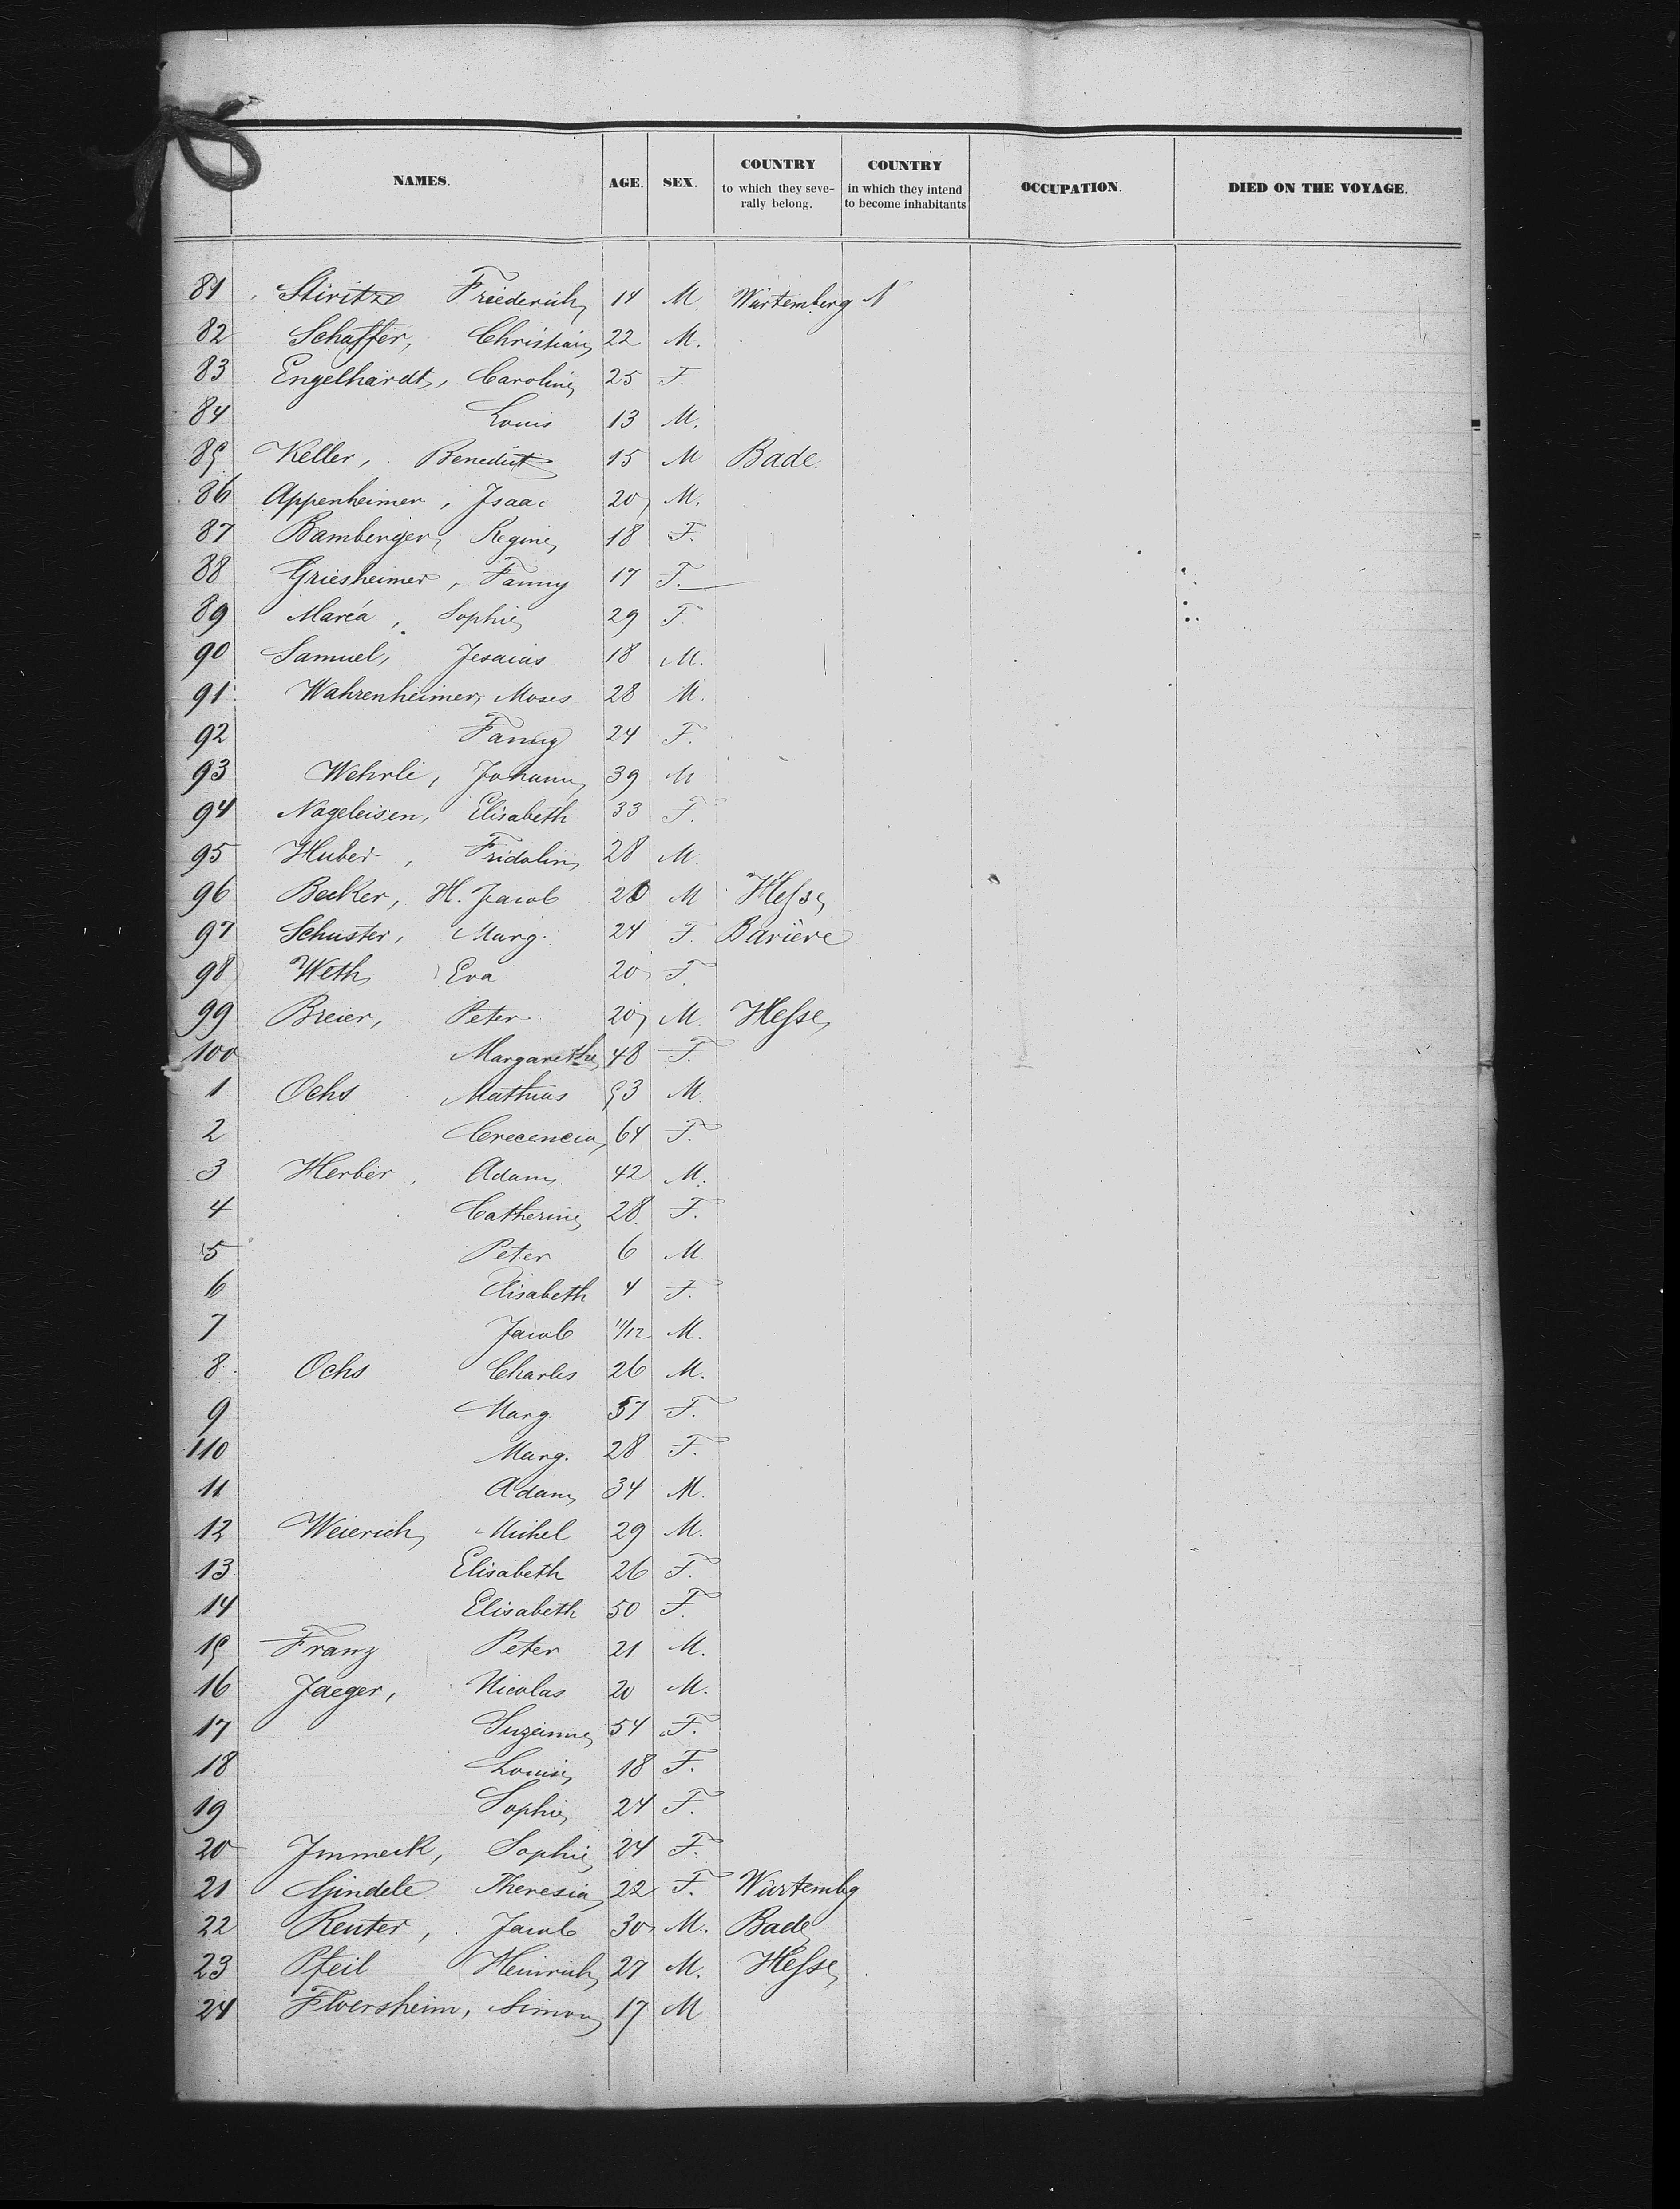 NAMES. AGE. SEX. COUNTRY to which they severally belong. COUNTRY in which they intend to become inhabitants OCCUPATION. DIED ON THE VOYAGE.
81 Stiritz Friederich 14 M. Würtemberg N
82 Schaffer, Christian 22 M.
83 Engelhardt, Caroline 25 F.
84 Louis 13 M.
85 Keller, Benedict 15 M Bade
86 Appenheimer, Isaac 20 M.
87 Bamberger, Regine 18 F.
88 Griesheimer, Fanny 17 F.
89 Maréa, Sophie 29 F
90 Samuel, Jesaias 18 M.
91 Wahrenheimer, Moses 28 M.
92 Fanny 24 F.
93 Wehrle, Johann 39 M
94 Nageleisen, Elisabeth 33 F.
95 Huber, Fridolin 28 M.
96 Becker, H. Jacob 20 M Hesse
97 Schuster, Marg. 24 F. Baviere
98 Weth Eva 20 F.
99 Breier, Peter 20 M. Hesse
100 Margarethe 48 F.
1 Ochs Mathias 53 M.
2 Crecencia 64 F.
3 Herber, Adam 42 M.
4 Catherine 28 F.
5 Peter 6 M.
6 Elisabeth 4 F.
7 Jacob 11/12 M.
8 Ochs Charles 26 M.
9 Marg. 57 F.
110 Marg. 28 F.
11 Adam 34 M.
12 Weierich Michel 29 M.
13 Elisabeth 26 F.
14 Elisabeth 50 F.
15 Franz Peter 21 M.
16 Jaeger, Nicolas 20 M.
17 Suzanne 54 F.
18 Louise 18 F.
19 Sophie 24 F.
20 Immeck, Sophie 24 F.
21 Gindele Theresia 22 F. Würtembg
22 Reuter, Jacob 30 M. Bade
23 Pfeil Heinrich 27 M. Hesse
24 Floersheim, Simon 17 M